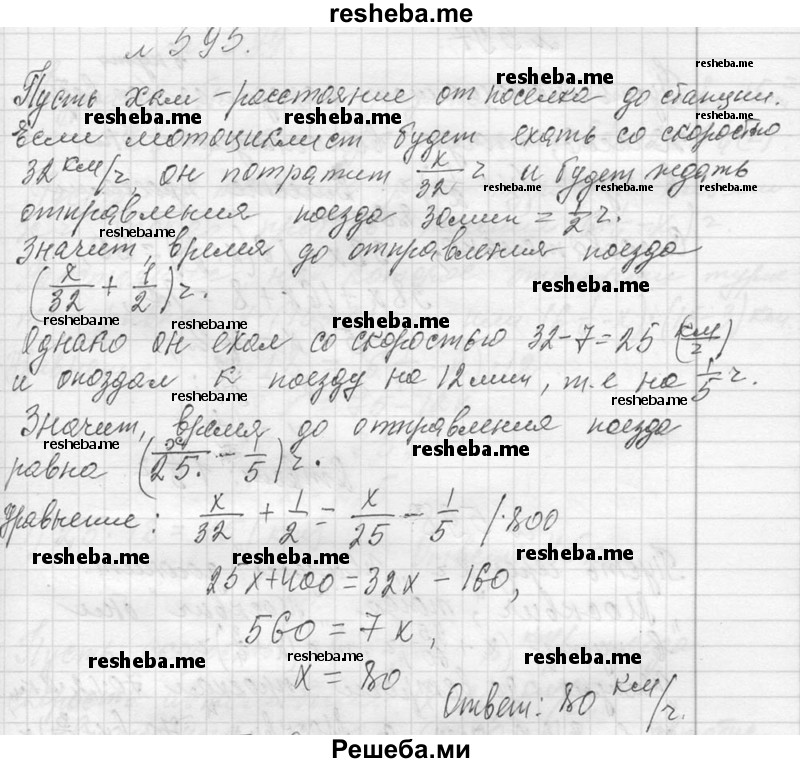 resheba.me
№ 595.
resheba.me
resheba.me
Пусть x км – расстояние от поселка до станции.
resheba.me resheba.me resheba.me
Если мотоциклист будет ехать со скоростью
32 км/ч, он потратит x/32 ч и будет ждать
resheba.me resheba.me resheba.me
отправления поезда 30 мин = 1/2 ч.
Значит, время до отправления поезда
resheba.me resheba.me
(x/32 + 1/2) ч.
resheba.me
resheba.me resheba.me
Однако он ехал со скоростью 32-7=25 (км/ч)
и опоздал к поезду на 12 мин, т.е на 1/5 ч.
resheba.me resheba.me
Значит, время до отправления поезда
resheba.me resheba.me
равна (x/25. - 1/5) ч.
Уравнение: x/32 + 1/2 = x/25 - 1/5 /·800
resheba.me resheba.me resheba.me
25x+400=32x-160,
560 = 7x,
resheba.me resheba.me resheba.me
x = 80
Ответ: 80 км/ч.
Решеба.ми